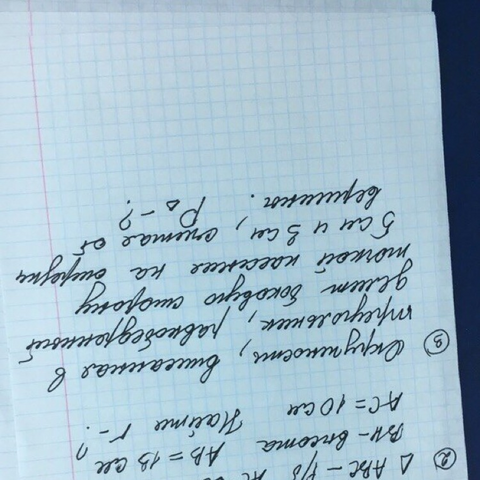 ② △ ABC – р/б AC
BH – высота AB = 13 см
AC = 10 см Найти r – ?
③ Окружность, вписанная в
треугольник, равнобедренный
делит боковую сторону
точкой касания на отрезки
5 см и 3 см, считая от
вершины. P△ – ?